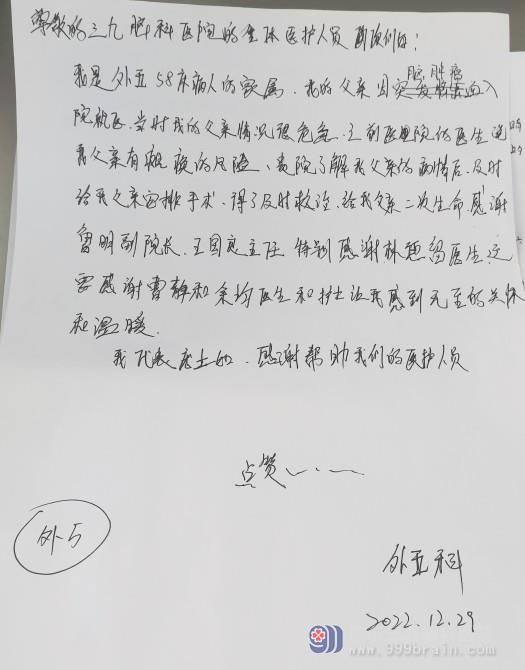 尊敬的三九脑科医院的全体医护人员 你们好:
我是外五58床病人的家属、我的父亲因 脑肿瘤 入
院就医、当时我的父亲情况很危急、之前医院的医生说
我父亲有瘫痪的风险、贵院了解我父亲的病情后、及时
给我父亲安排手术、得了及时救治、给我父亲二次生命 感谢
鲁明副院长、王国良主任 特别感谢林 医生、还
要感谢曹静和余均医生和护士让我感到无至的关怀
和温暖.
我代表 的、感谢帮助我们的医护人员
点赞
外5
外五科
2022.12.29
999
www.999brain.com